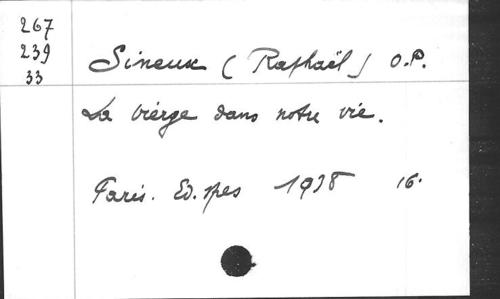 267
239
33
Sineux (Raphaël) O.P.
La vierge dans notre vie.
Paris. Ed. Spes 1938 16°